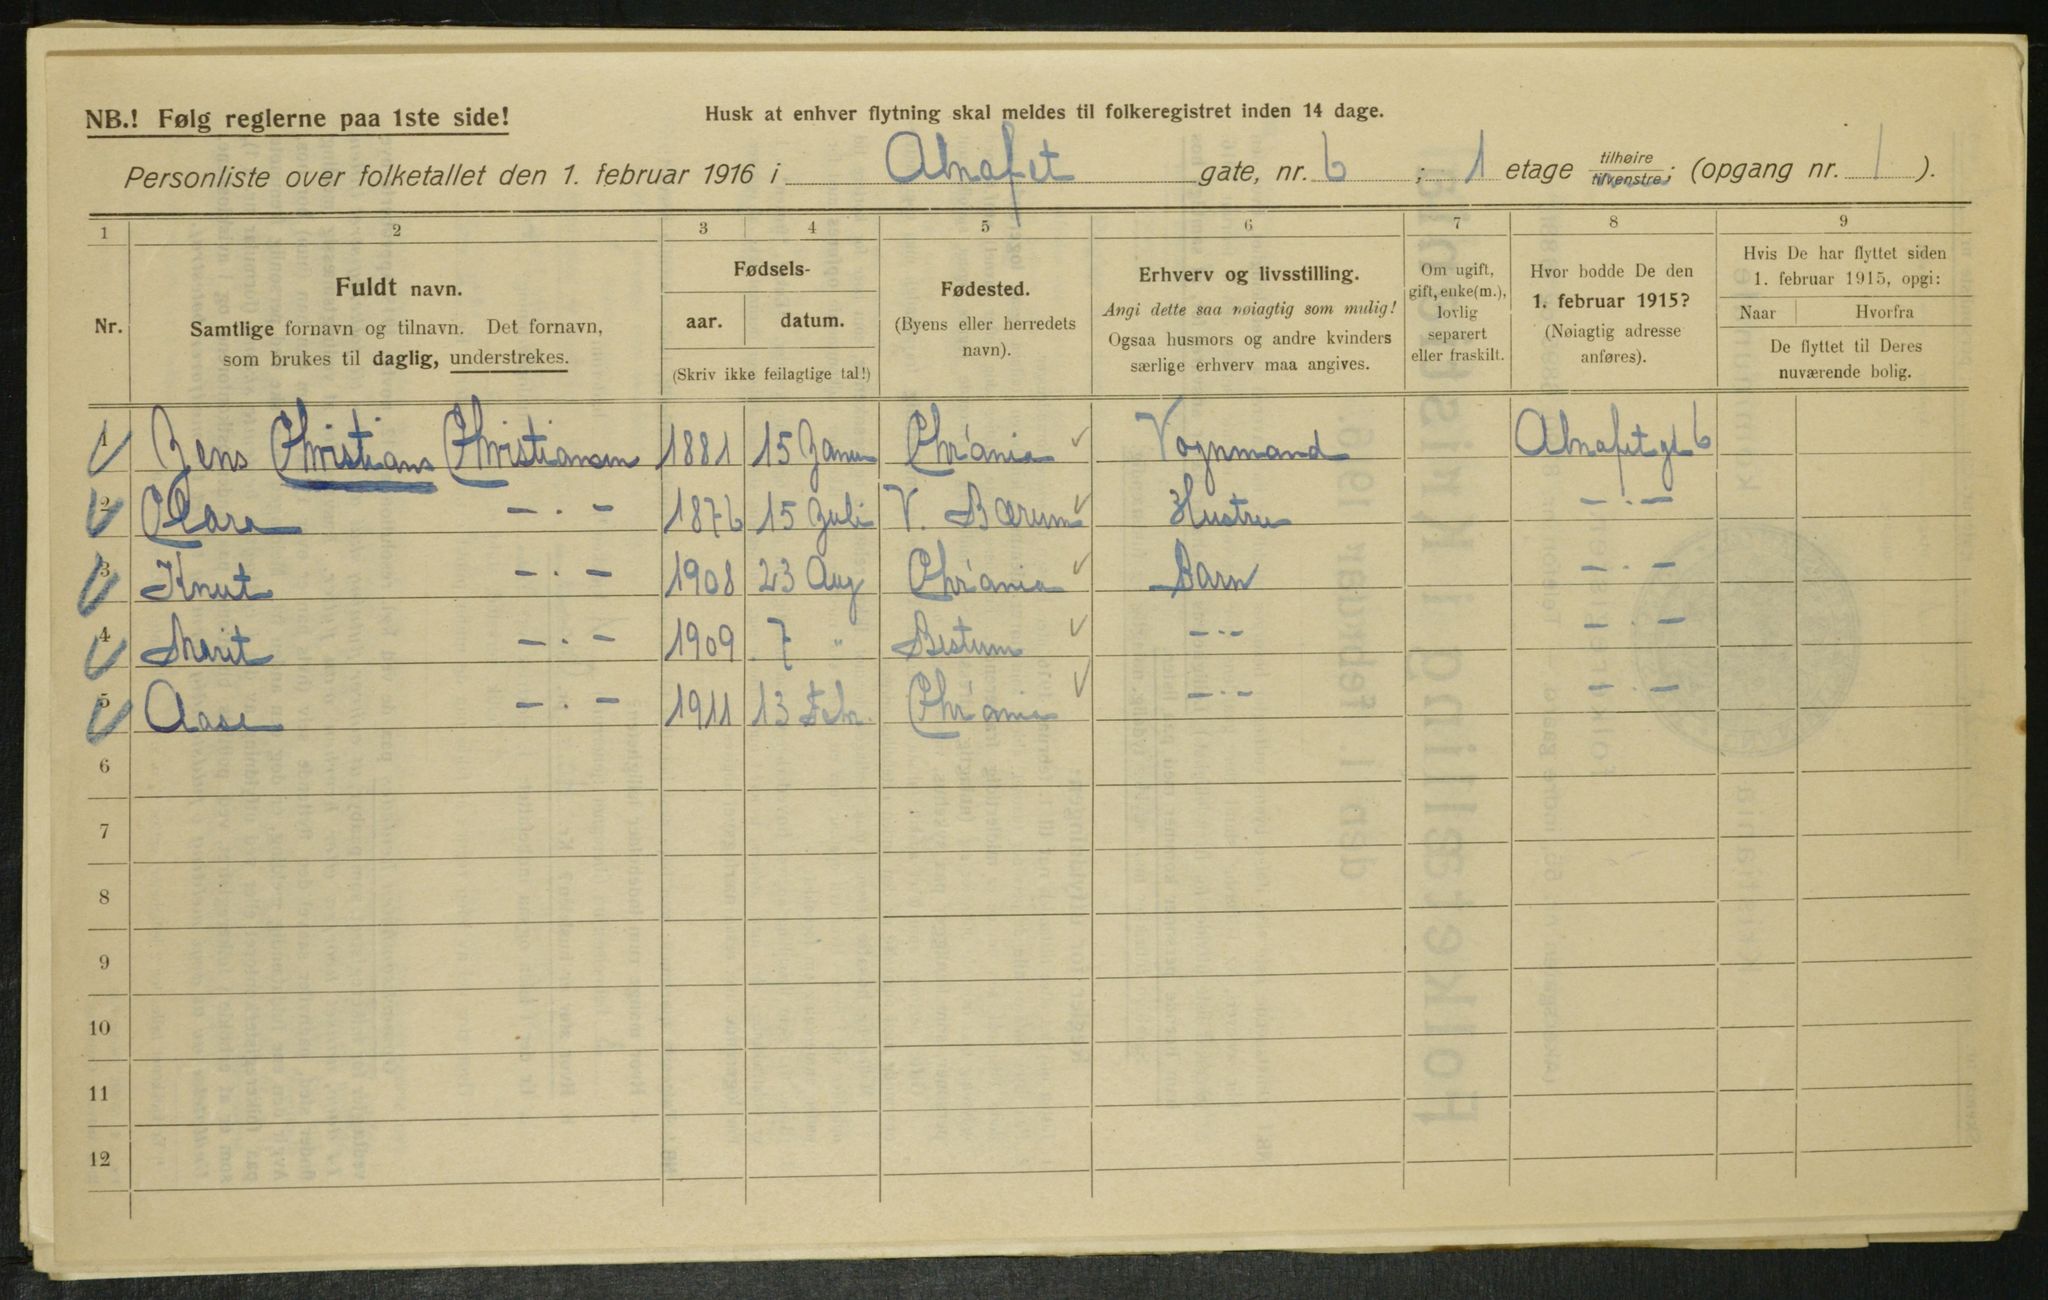 NB.! Følg reglerne paa 1ste side!
Husk at enhver flytning skal meldes til folkeregistret inden 14 dage.
Personliste over folketallet den 1. februar 1916 i Alnafet gate, nr. 6 ; 1 etage tilhøire tilvenstre; (opgang nr. 1 ).
1 2 3 4 5 6 7 8 9
Nr.
Fuldt navn.
Samtlige fornavn og tilnavn. Det fornavn,
som brukes til daglig, understrekes.
Fødsels-
aar. datum.
(Skriv ikke feilagtige tal!)
Fødested.
(Byens eller herredets
navn).
Erhverv og livsstilling.
Angi dette saa nøiagtig som mulig!
Ogsaa husmors og andre kvinders
særlige erhverv maa angives.
Om ugift,
gift, enke(m.),
lovlig
separert
eller fraskilt.
Hvor bodde De den
1. februar 1915?
(Nøiagtig adresse
anføres).
Hvis De har flyttet siden
1. februar 1915, opgi:
Naar Hvorfra
De flyttet til Deres
nuværende bolig.
1 Jens Christians Christiansen 1881 15 Janu Chr'ania Vognmand Alnafetgt 6
2 Clara —·— 1876 15 Juli V. Bærum Hustru —·—
3 Knut —·— 1908 23 Aug Chr'ania Barn —·—
4 Marit —·— 1909 7 " Bestum —·— —·—
5 Aase —·— 1911 13 Febr. Chr'ania —·— —·—
6
7
8
9
10
11
12